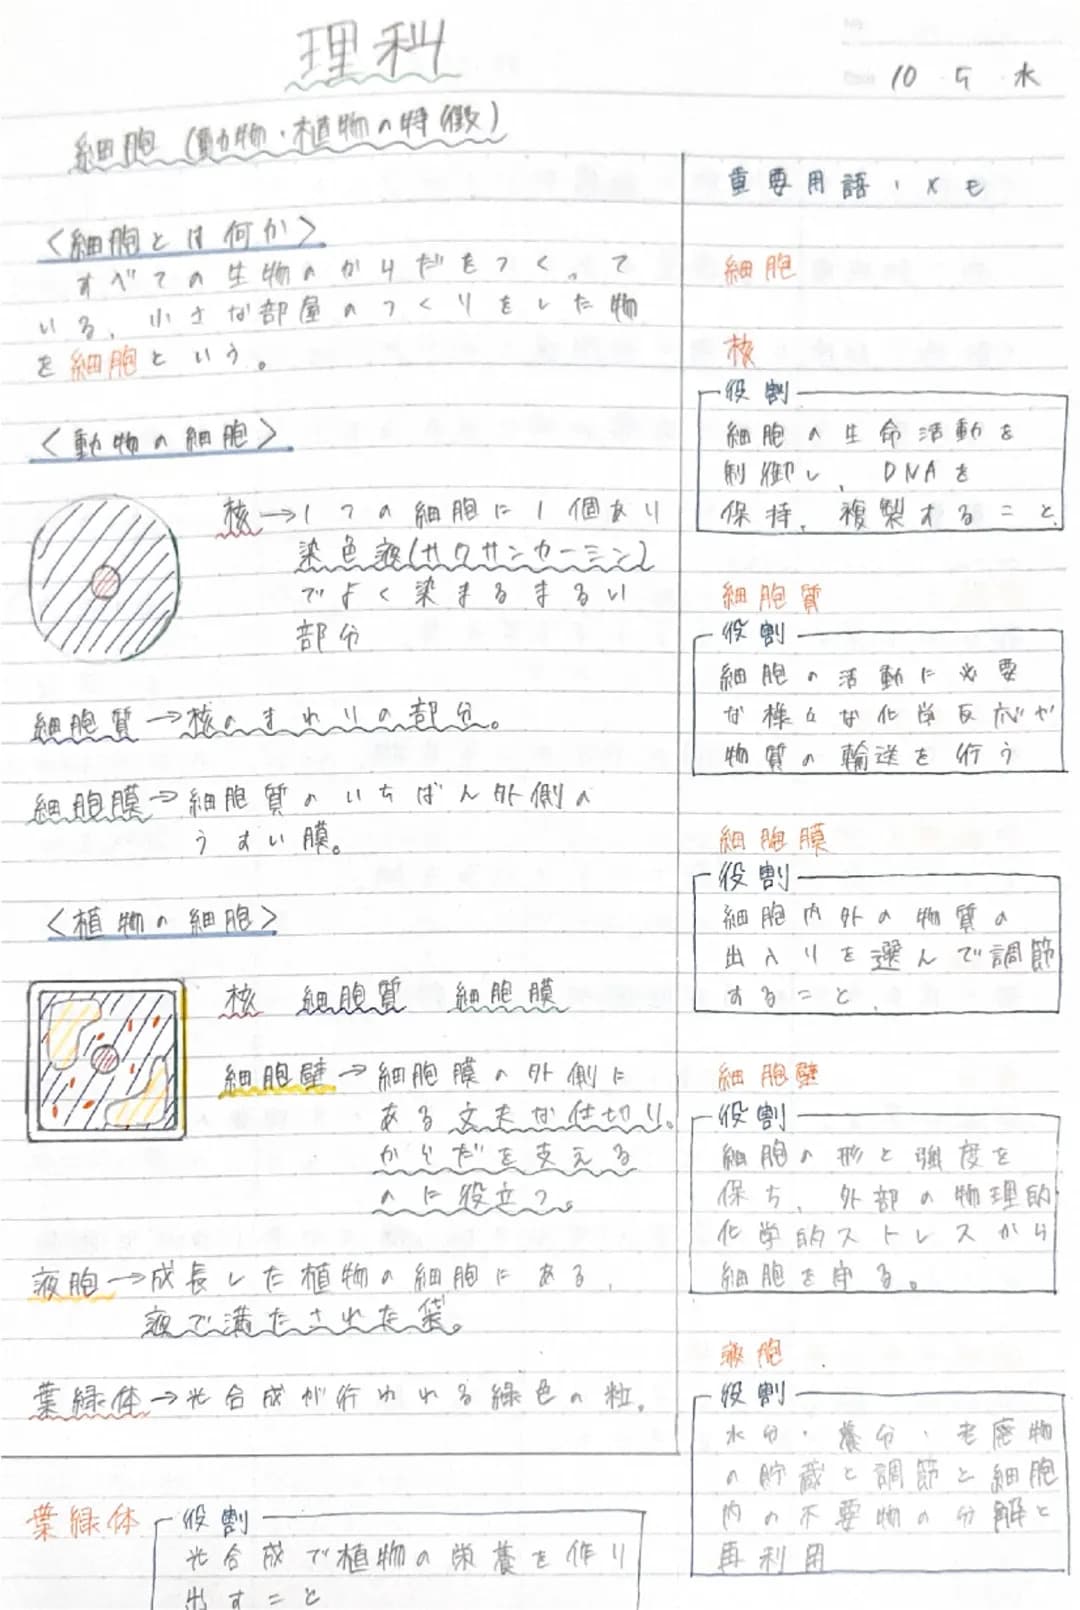 理科
10 5 水
細胞 (動物・植物の特徴)
<細胞とは何か>
すべての生物のからだをつくって
いる、小さな部屋のつくりをした物
を細胞という。
<動物の細胞>
核→1つの細胞に1個あり
染色液(サクサンカーミン)
でよく染まるまるい
部分
細胞質→核のまわりの部分。
細胞膜→細胞質のいちばん外側の
うすい膜。
<植物の細胞>
核 細胞質 細胞膜
細胞壁→細胞膜の外側に
ある丈夫な仕切り。
からだを支える
のに役立つ。
液胞→成長した植物の細胞にある、
液で満たされた袋。
葉緑体→光合成が行われる緑色の粒。
重要用語・メモ
細胞
核
役割
細胞の生命活動を
制御し、DNAを
保持、複製すること
細胞質
役割
細胞の活動に必要
な様々な化学反応や
物質の輸送を行う
細胞膜
役割
細胞内外の物質の
出入りを選んで調節
すること、
細胞壁
役割
細胞の形と強度を
保ち、外部の物理的
化学的ストレスから
細胞を守る。
液胞
役割
水分・養分・老廃物
の貯蔵と調節と細胞
内の不要物の分解と
再利用
葉緑体
役割
光合成で植物の栄養を作り
出すこと